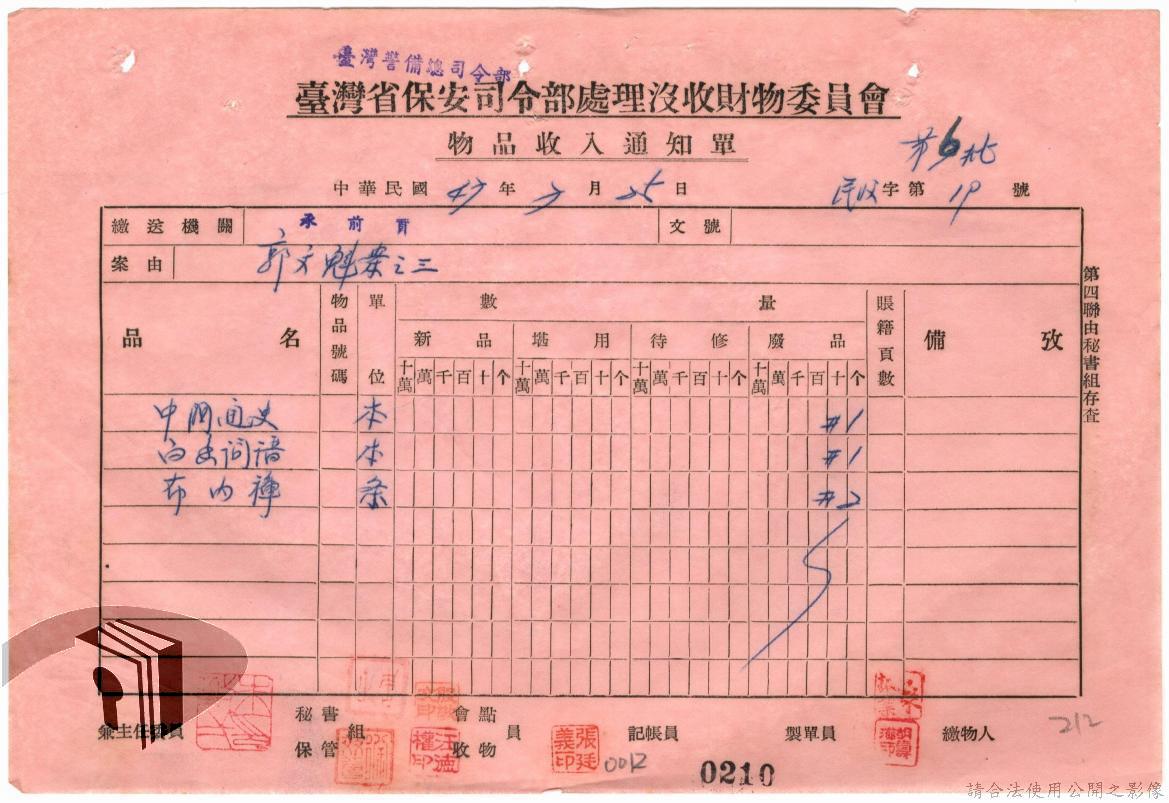 臺灣警備總司令部
臺灣省保安司令部處理沒收財物委員會
物品收入通知單
第6批
中華民國 47 年 7 月 25 日 字第 19 號
繳送機關 承前頁 文號
案由 郭文魁案之三
品名 物品號碼 單位 數量 賬籍頁數 備攷
新品 堪用 待修 廢品
十萬 萬 千 百 十 个 十萬 萬 千 百 十 个 十萬 萬 千 百 十 个 十萬 萬 千 百 十 个
中國通史 本 #1
本 #1
布內褲 条 #2
第四聯由秘書組存查
兼主任委員 秘書組 保管 會點 收物 員 記帳員 製單員 繳物人
張廷義印
0012
0210
212
請合法使用公開之影像